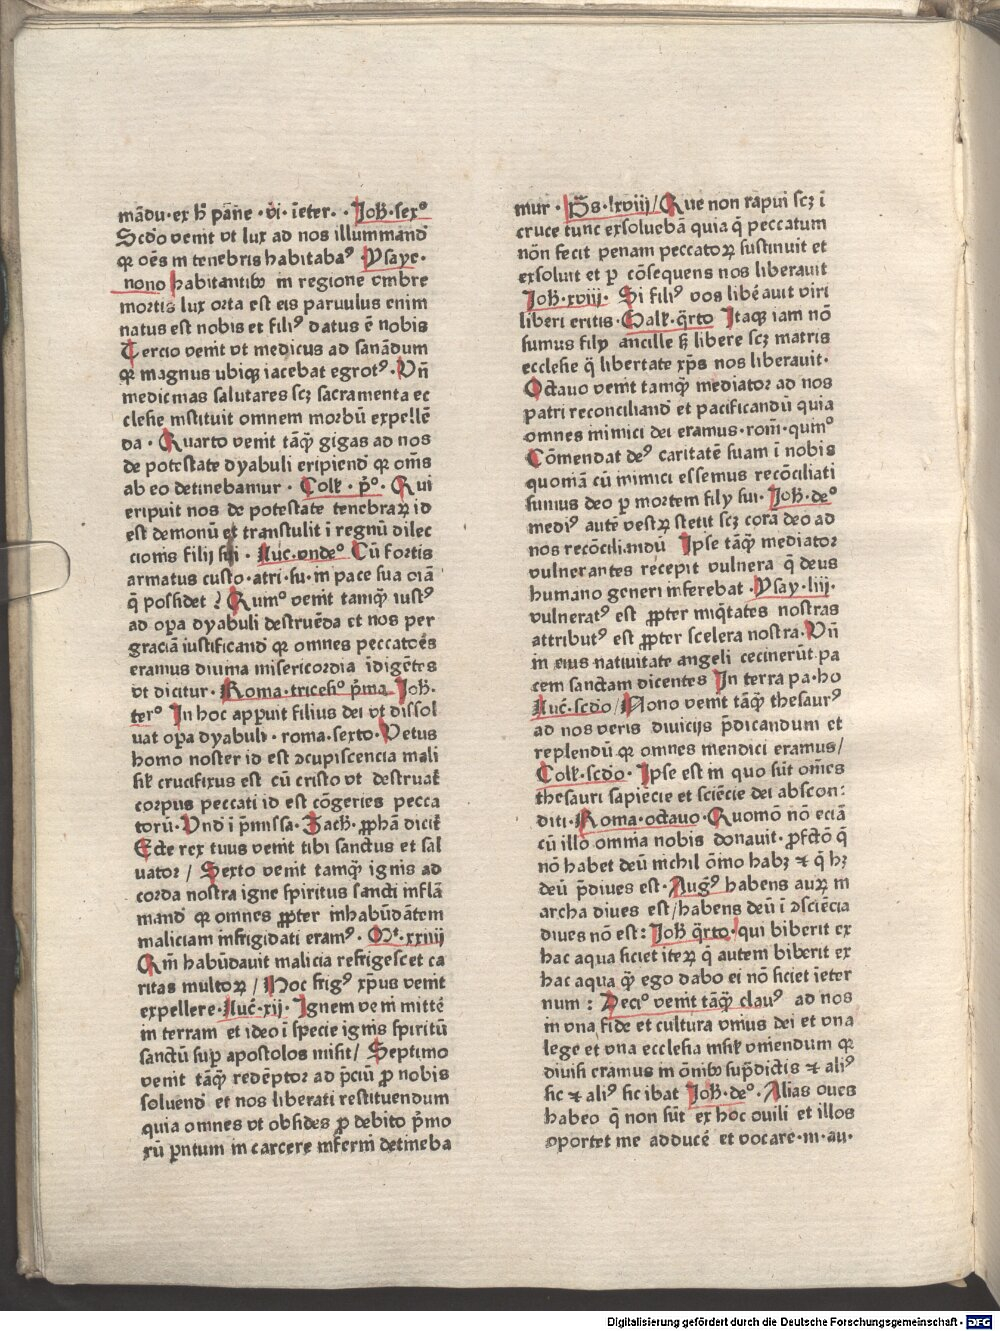 mādu·ex h̄ pane·vi·ieter·· Joh̄·sexᵒ
Scdo venit vt lux ad nos illuminand
qꝛ oēs in tenebris habitabaꝰ·Ysaye·
nono habitantibꝰ in regione vmbre
mortis lux orta est eis paruulus enim
natus est nobis et filiꝰ datus ē nobis
Tercio venit vt medicus ad sanādum
qꝛ magnus ubiqꝫ iacebat egrotꝰ·Vn̄
medicinas salutares scꝫ sacramenta ec
clesie instituit omnem morbū expellē
da·Quarto venit tāqꝫ gigas ad nos
de potestate dyabuli eripiend qꝛ om̄s
ab eo detinebamur·Colꝰ·p̄ᵒ·Qui
eripuit nos de potestate tenebraꝝ id
est demonū et transtulit ī regnū dilec
cionis filij sui·Luc̄·vndeᵒ Cū fortis
armatus custo·atri·su·in pace sua oīā
q̄ possidet ? Quinᵒ venit tamqꝫ iustꝰ
ad opa dyabuli destruēda et nos per
graciā iustificand qꝛ omnes peccatoēs
eramus diuina misericordia īdigētes
vt dicitur·Roma·tricesiᵒ p̄ma Joh̄·
terᵒ In hoc appuit filius dei vt dissol
uat opa dyabuli·roma·sexto·Vetus
homo noster id est ɔcupiscencia mali
sil crucifixus est cū cristo vt destruat
corpus peccati id est cōgeries pecca
torū·Vnd ī p̄missa·Zach̄·ꝓphā dicit
Ecce rex tuus venit tibi sanctus et sal
uator / Sexto venit tamqꝫ ignis ad
corda nostra igne spiritus sancti inflā
mand qꝛ omnes ꝓpter inhabūdātem
maliciam infrigidati eramꝰ·Mᵗ·xxiiij
Qm̄ habūdauit malicia refrigescet ca
ritas multoꝝ / Hoc frigꝰ xp̄us venit
expellere·Luc̄·xij·Ignem veni mitte
in terram et ideo ī specie ignis spiritū
sanctū sup apostolos misit / Septimo
venit tāqꝫ redēptor ad p̄ciū ꝓ nobis
soluend et nos liberati restituendum
quia omnes vt obsides ꝓ debito p̄mo
rū pntum in carcere inferni detineba
mur·Ps̄·lxviij / Que non rapui scꝫ ī
cruce tunc exsoluebā quia q̄ peccatum
nōn fecit penam peccatoꝝ sustinuit et
exsoluit et ꝑ cōsequens nos liberauit
Joh̄·xviij·Si filiꝰ vos libeauit viri
liberi eritis·Galꝰ·q̄rto Itaqꝫ iam nō
sumus filij ancille sꝫ libere scꝫ matris
ecclesie q̄ libertate xp̄s nos liberavit·
Octauo venit tamqꝫ mediator ad nos
patri reconciliand et pacificandū quia
omnes inimici dei eramus·rom̄·quinᵒ
Cōmendat deꝰ caritatē suam ī nobis
quoniā cū inimici essemus recōciliati
sumus deo ꝑ mortem filij sui·Joh̄·deᵒ
mediꝰ autē vestꝝ stetit scꝫ corā deo ad
nos recōciliandū Ipse tāqꝫ mediator
vulnerantes recepit vulnera q̄ deus
humano generi inferebat·Ysay·liij·
vulneratꝰ est ꝓpter iniq̄tates nostras
attributꝰ est ꝓpter scelera nostra·Vn̄
in eius nativitate angeli cecinerūt pa
cem sanctam dicentes In terra pa·ho
Luc̄·scdo / Nono venit tāqꝫ thesaurꝰ
ad nos veris diuicijs p̄dicandum et
replendū qꝛ omnes mendici eramus /
Colꝰ·scdo·Ipse est in quo sūt omēs
thesauri sapiēcie et sciēcie dei abscon:
diti·Roma·octauo·Quomō nō eciā
cū illo omnia nobis donauit·ꝓfctō q̄
nō habet deū nichil ōmo habꝫ ⁊ q̄ hꝫ
deū p̄diues est·Augꝰ habens auꝝ in
archa diues est / habens deū ī ɔsciēcia
diues nō est: Joh̄ q̄rto·qui biberit ex
hac aqua siciet iteꝝ q̄ autem biberit ex
hac aqua q̄ ego dabo ei nō siciet ieter
num : Deciᵒ venit tāqꝫ clauꝰ ad nos
in vna fide et cultura vnius dei et vna
lege et vna ecclesia insil vniendum qꝛ
diuisi eramus in oībꝰ sup̄dictis ⁊ aliꝰ
sic ⁊ aliꝰ sic ibat Joh̄·deᵒ·Alias oues
habeo q̄ non sūt ex hoc ouili et illos
oportet me adduce et vocare·m·au·
Digitalisierung gefördert durch die Deutsche Forschungsgemeinschaft - DFG